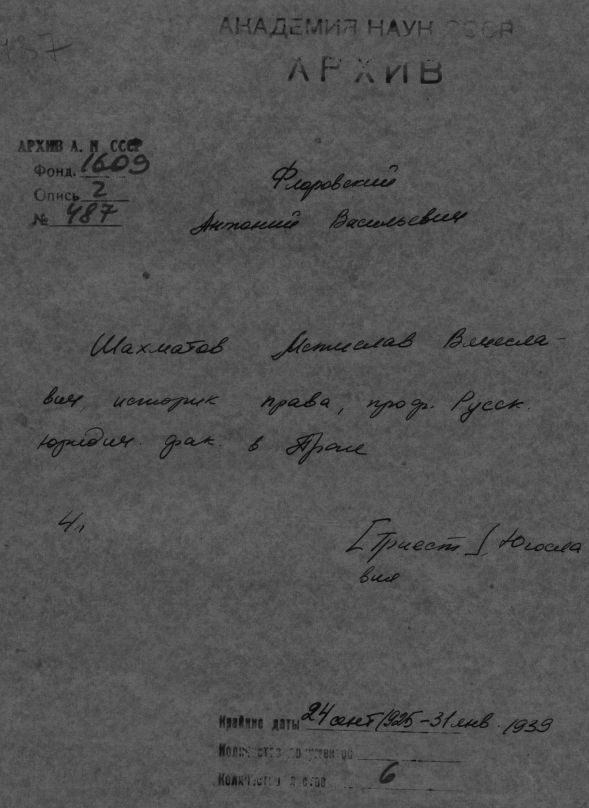 437
АКАДЕМИЯ НАУК СССР
АРХИВ
АРХИВ А. Н. СССР
Фонд. 1609
Опись 2
№ 487
Флоровский
Антоний Васильевич
Шахматов Мстислав Вячесла-
вич, историк права, проф. Русск.
юридич. фак. в Праге
4 л
[Триест], Югосла
вия
Крайние даты 24 сент 1925 - 31 янв. 1939
Количество
Количество листов 6